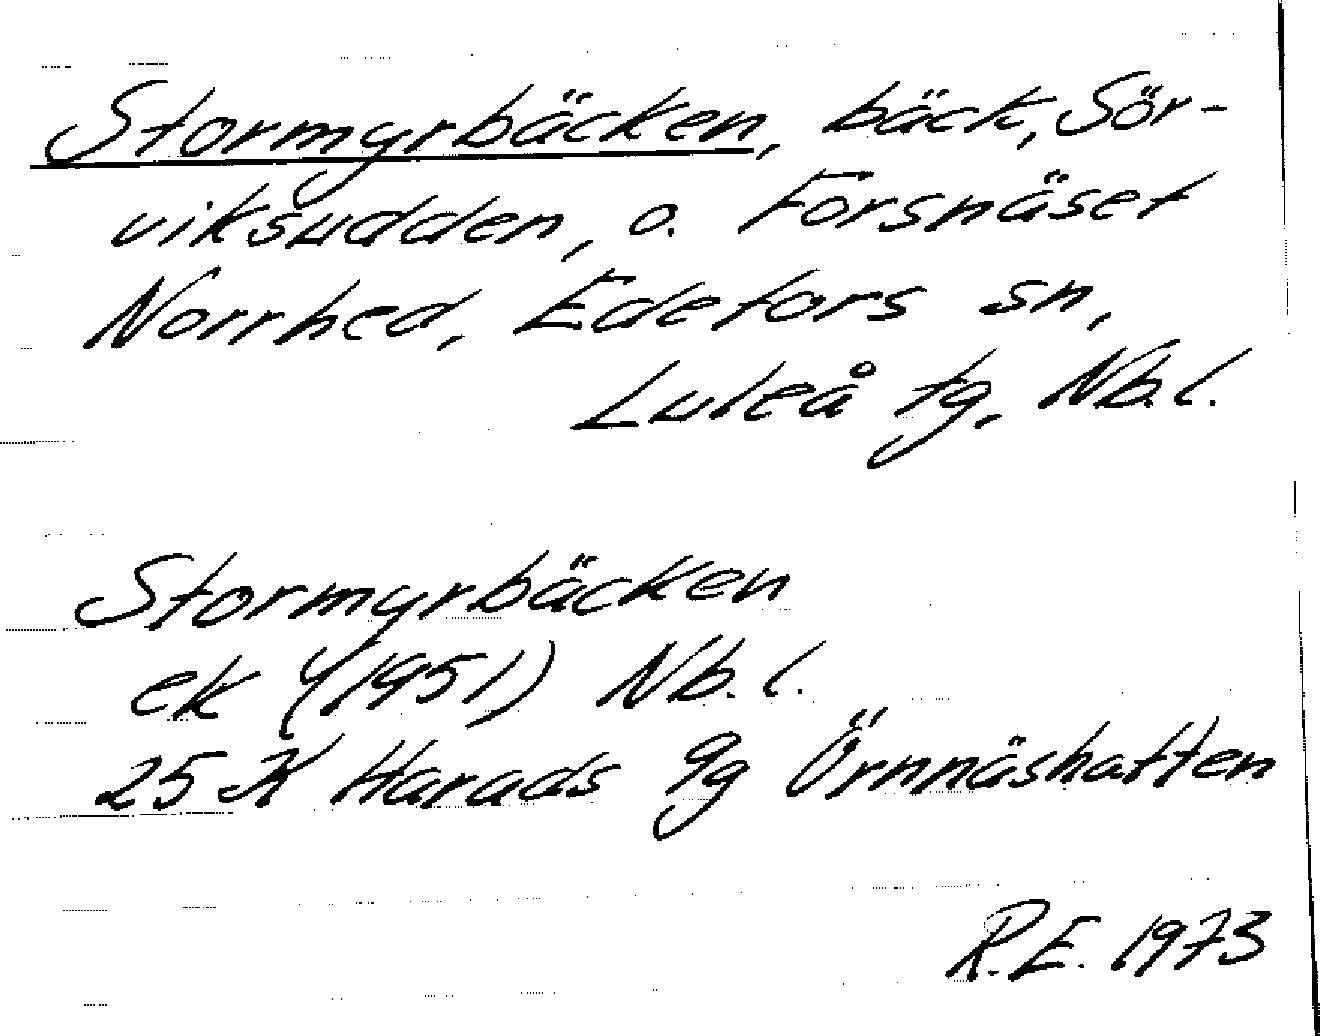 Stormyrbäcken, bäck, Sör-
viksudden, o. Forsnäset
Norrhed, Edefors sn,
Luleå tg, Nb.l.
Stormyrbäcken
ek (1951) Nb.l.
25 K Harads 9g Örnnäshatten
R.E. 1973